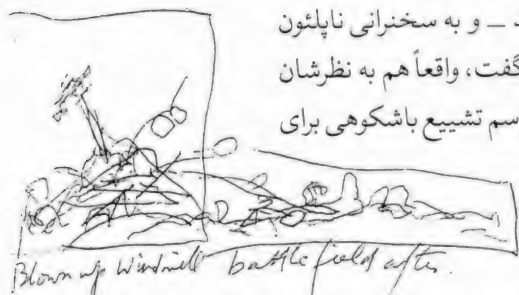 ـ و به سخنرانی ناپلئون
گفت، واقعاً هم به نظرشان
اسم تشییع باشکوهی برای
Blown up windmill battlefield after.